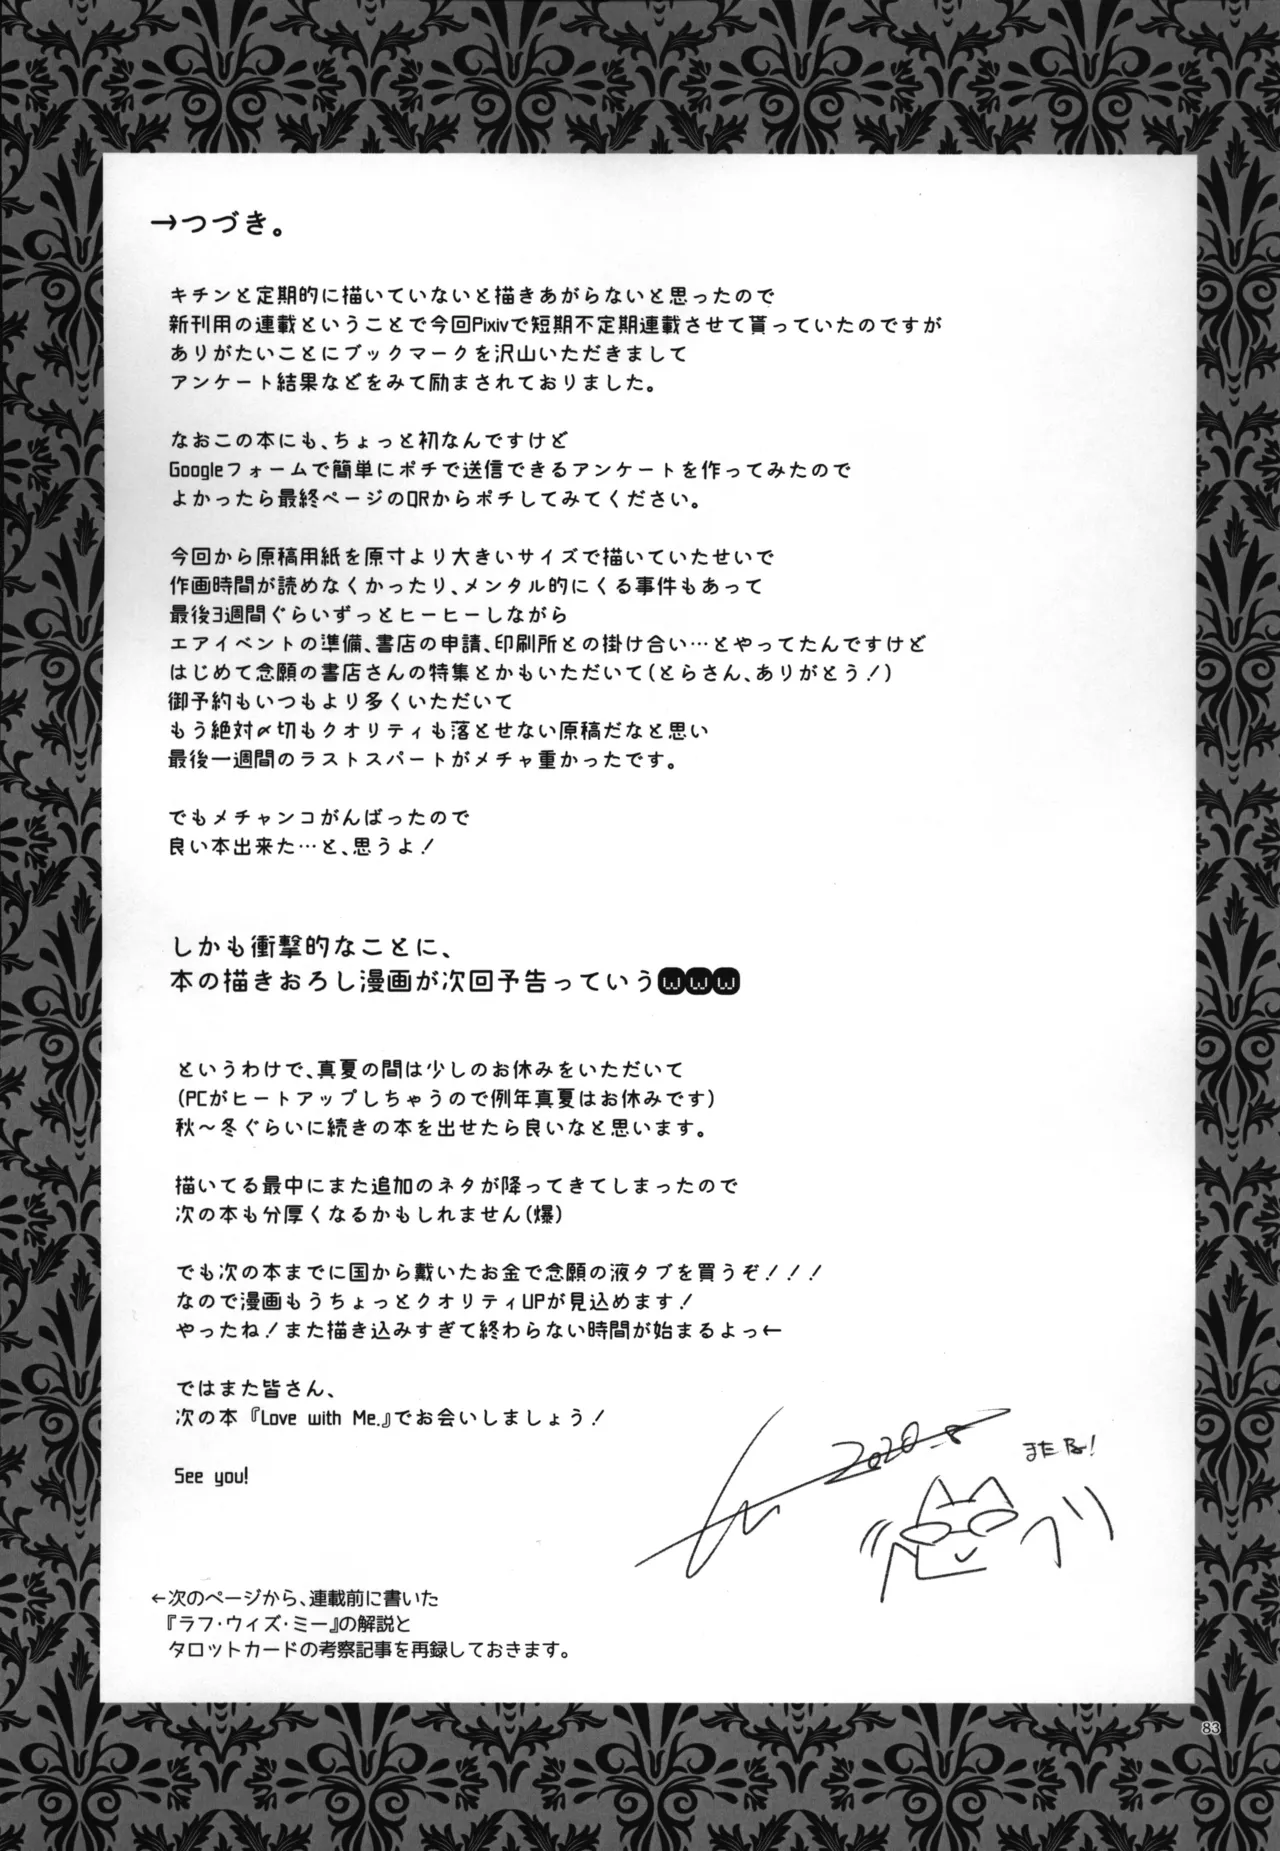 →つづき。
キチンと定期的に描いていないと描きあがらないと思ったので
新刊用の連載ということで今回Pixivで短期不定期連載させて貰っていたのですが
ありがたいことにブックマークを沢山いただきまして
アンケート結果などをみて励まされておりました。
なおこの本にも、ちょっと初なんですけど
Googleフォームで簡単にポチで送信できるアンケートを作ってみたので
よかったら最終ページのQRからポチしてみてください。
今回から原稿用紙を原寸より大きいサイズで描いていたせいで
作画時間が読めなくかったり、メンタル的にくる事件もあって
最後3週間ぐらいずっとヒーヒーしながら
エアイベントの準備、書店の申請、印刷所との掛け合い…とやってたんですけど
はじめて念願の書店さんの特集とかもいただいて(とらさん、ありがとう!)
御予約もいつもより多くいただいて
もう絶対〆切もクオリティも落とせない原稿だなと思い
最後一週間のラストスパートがメチャ重かったです。
でもメチャンコがんばったので
良い本出来た…と、思うよ!
しかも衝撃的なことに、
本の描きおろし漫画が次回予告っていうwww
というわけで、真夏の間は少しのお休みをいただいて
(PCがヒートアップしちゃうので例年真夏はお休みです)
秋～冬ぐらいに続きの本を出せたら良いなと思います。
描いてる最中にまた追加のネタが降ってきてしまったので
次の本も分厚くなるかもしれません(爆)
でも次の本までに国から戴いたお金で念願の液タブを買うぞ!!!
なので漫画もうちょっとクオリティUPが見込めます!
やったね!また描き込みすぎて終わらない時間が始まるよっ←
ではまた皆さん、
次の本『Love with Me.』でお会いしましょう!
See you!
2020.8
またね!
←次のページから、連載前に書いた
『ラフ・ウィズ・ミー』の解説と
タロットカードの考察記事を再録しておきます。
83